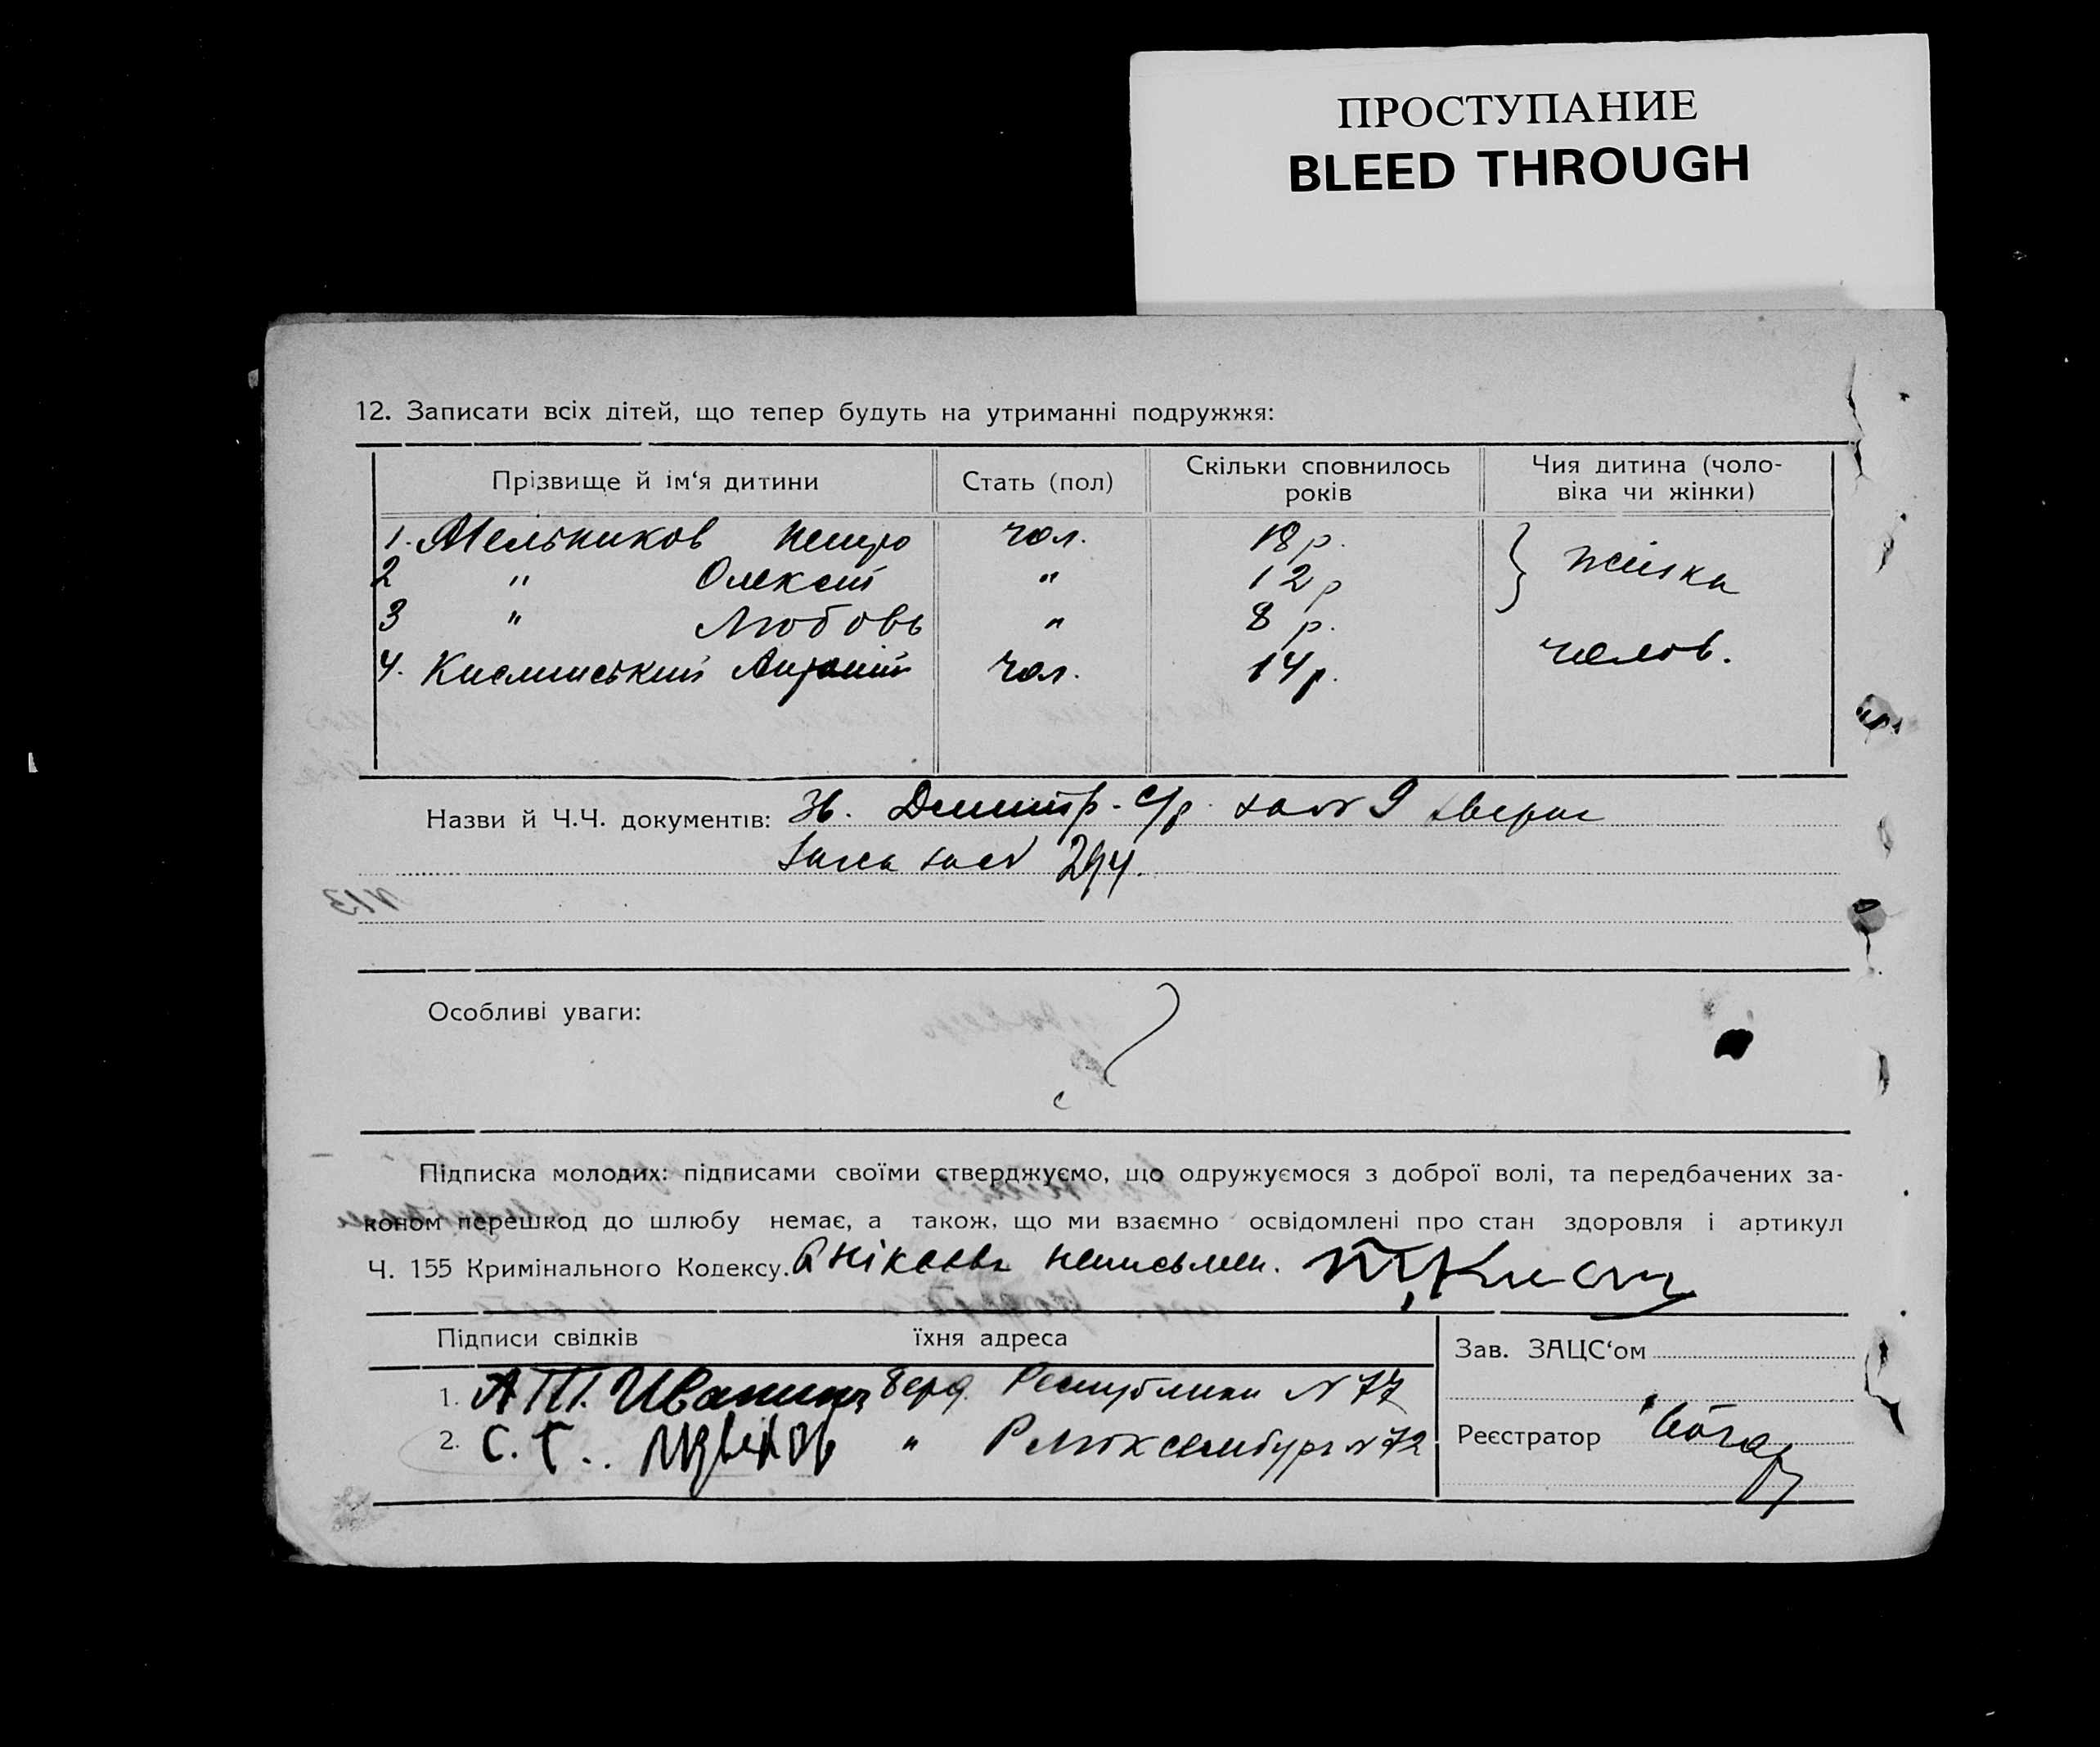 ПРОСТУПАНИЕ
BLEED THROUGH
12. Записати всіх дітей, що тепер будуть на утриманні подружжя:
Прізвище й ім‘я дитини Стать (пол) Скільки сповнилось років Чия дитина (чоловіка чи жінки)
1. Мельников Петро чол. 18 р. } жінка
2 " Олексій " 12 р
3 " Любовь " 8 р.
4. чол. 14 р. чолов.
Назви й Ч.Ч. документів: 9
294.
N13
Особливі уваги:
Підписка молодих: підписами своїми стверджуємо, що одружуємося з доброї волі, та передбачених за-
коном перешкод до шлюбу немає, а також, що ми взаємно освідомлені про стан здоровля і артикул
Ч. 155 Кримінального Кодексу. неписьмен.
Підписи свідків їхня адреса Зав. ЗАЦС‘ом
1. Республики N 77
2. С. Г. " Р Люксембург N 72 Реєстратор